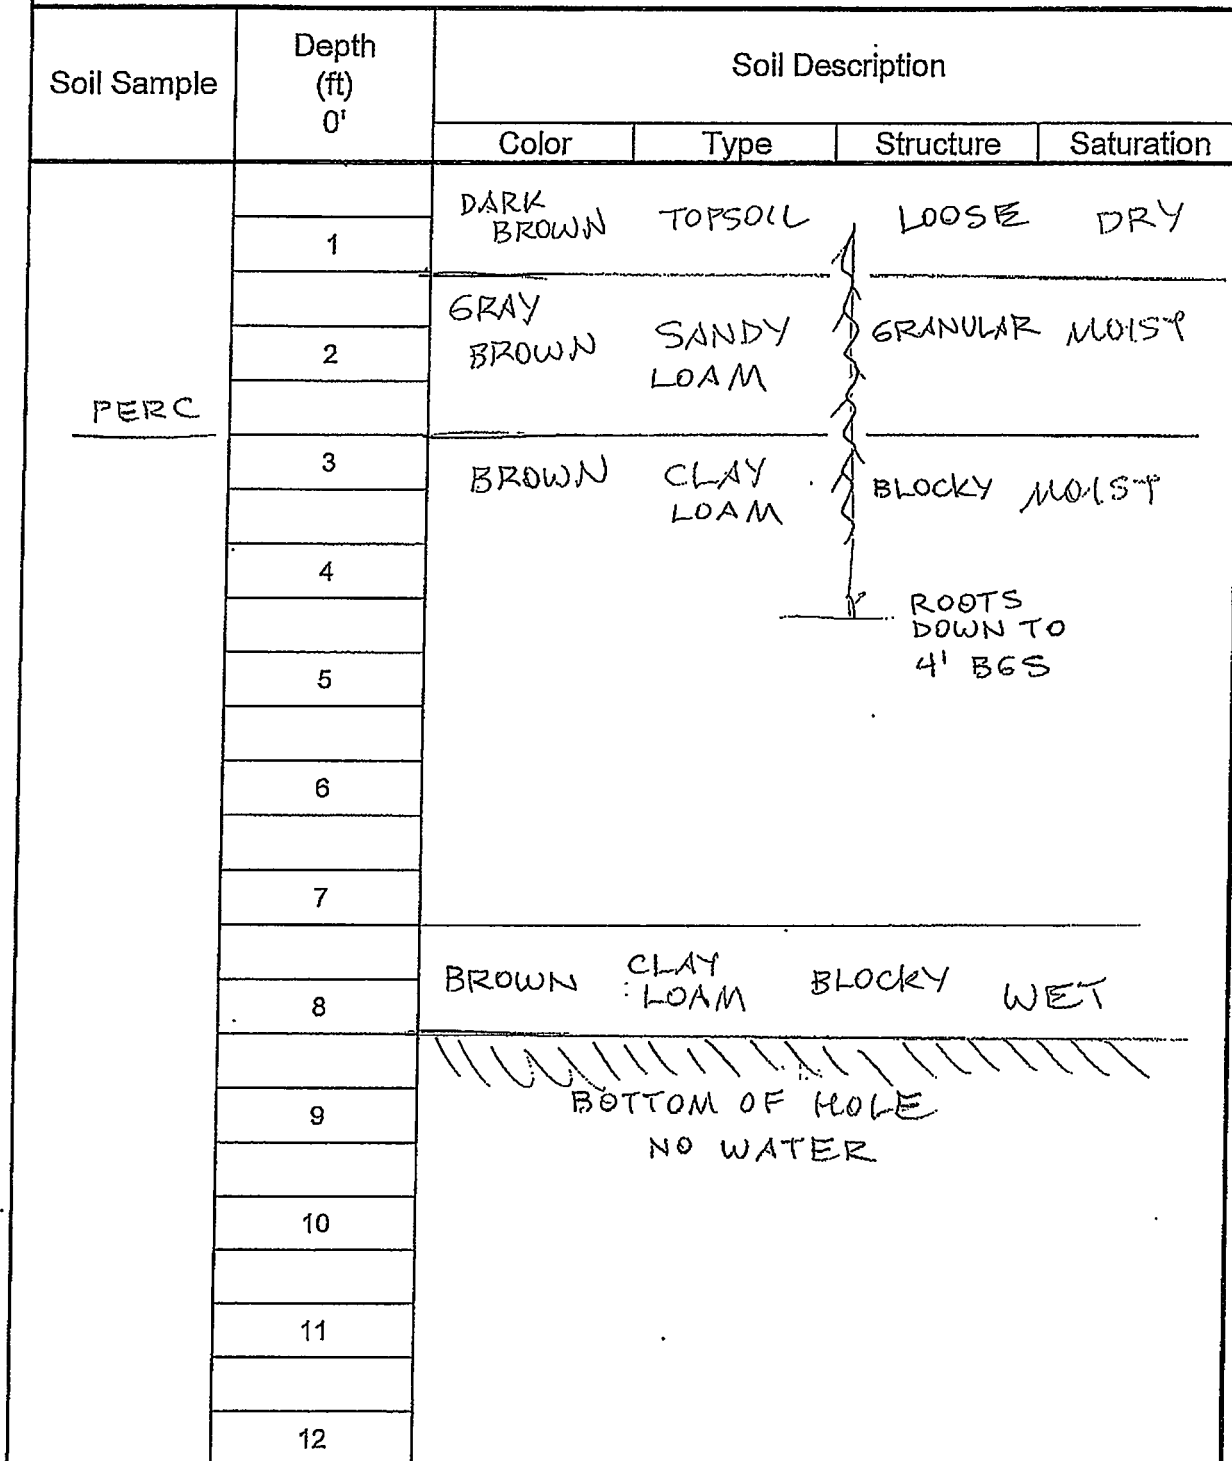 Soil Sample
Depth
(ft)
0'
Soil Description
Color Type Structure Saturation
DARK
BROWN TOPSOIL LOOSE DRY
1
GRAY
BROWN SANDY
LOAM GRANULAR MOIST
2
PERC
3
BROWN CLAY
LOAM BLOCKY MOIST
4
ROOTS
DOWN TO
4' BGS
5
6
7
BROWN CLAY
LOAM BLOCKY WET
8
BOTTOM OF HOLE
9
NO WATER
10
11
12